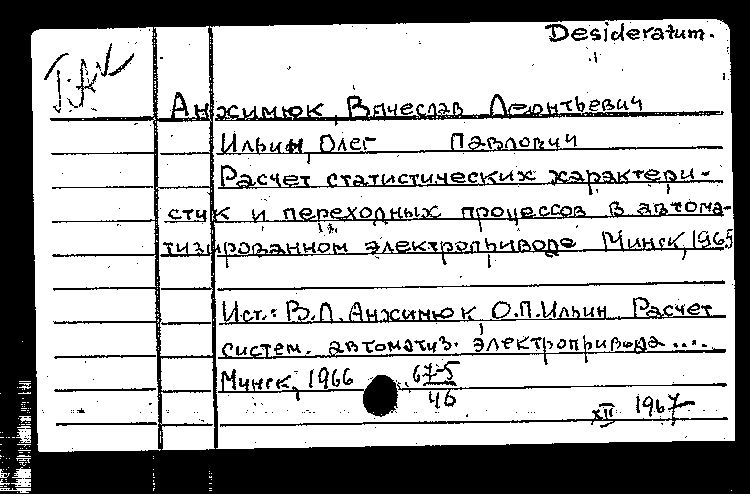 Desideratum.
Анжимюк, Вячеслав Леонтьевич
Ильин, Олег Павлович
Расчет статистических характери-
стик и переходных процессов в автома-
тизированном электроприводе Минск, 1965
Ист.: В.Л. Анжимюк, О.П. Ильин Расчет
систем. автоматиз. электропривода ....
Минск, 1966 67-5
46
XII 1967